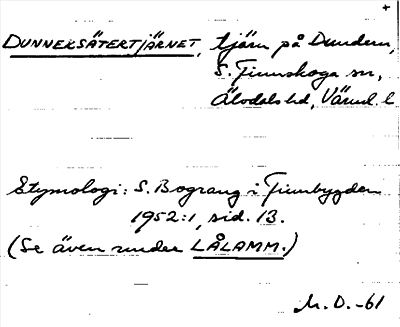 +
DUNNEKSÄTERTJÄRNET, tjärn på Dundern,
S. Finnskoga sn,
Älvdals hd, Värml. l
Etymologi: S. Bograng i Finnbygden
1952:1, sid. 13.
(Se även under LÅLAMM.)
M. O. -61